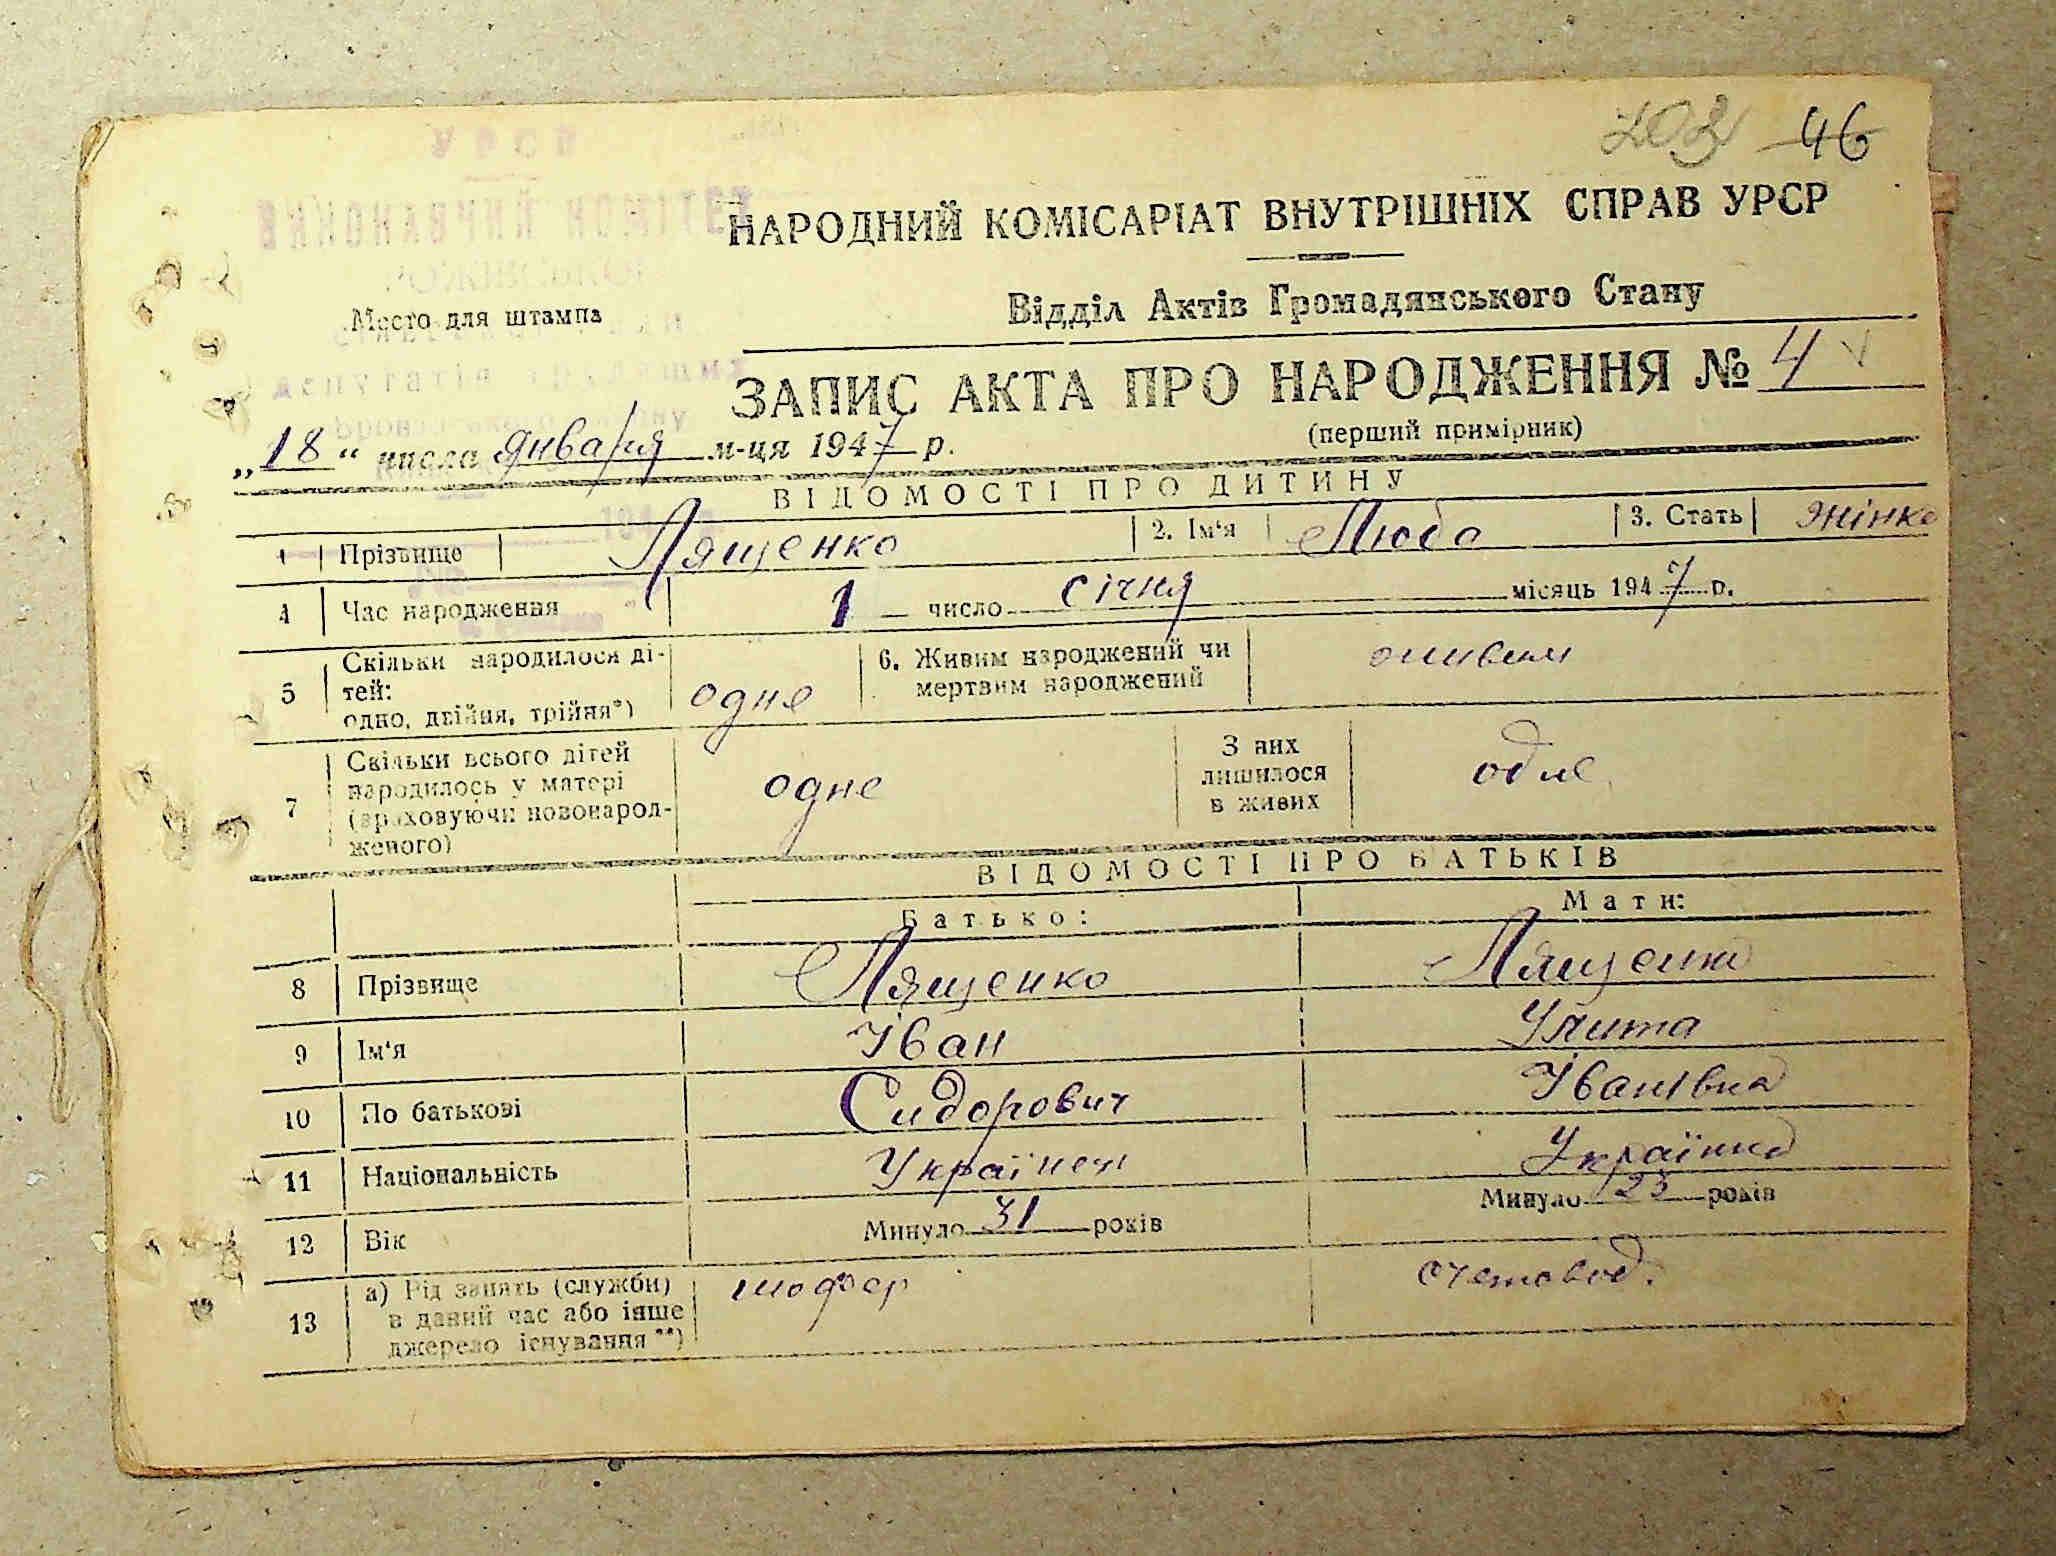 46
НАРОДНИЙ КОМІСАРІАТ ВНУТРІШНІХ СПРАВ УРСР
Место для штампа
Відділ Актів Громадянського Стану
ЗАПИС АКТА ПРО НАРОДЖЕННЯ № 4
(перший примірник)
„18“ числа января м-ця 1947 р.
ВІДОМОСТІ ПРО ДИТИНУ
1 Прізвище Лященко 2. Ім'я Люба 3. Стать жінко
4 Час народження 1 число січня місяць 1947 р.
5 Скільки народилося дітей: одно, двійня, трійня*) одне 6. Живим народжений чи мертвим народжений
7 Скільки всього дітей народилось у матері (враховуючи новонародженого) одне З них лишилося в живих одне
ВІДОМОСТІ ПРО БАТЬКІВ
Батько: Мати:
8 Прізвище Лященко Лященко
9 Ім'я Іван Улита
10 По батькові Сидорович Іванівна
11 Національність Українец Українка
12 Вік Минуло 31 років Минуло 23 років
13 а) Рід занять (служби) в даний час або інше джерело існування **) шофер счетовод.